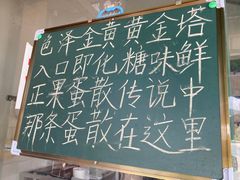 色泽金黄黄金塔
入口即化糖味鲜
正果蛋散传说中
那条蛋散在这里